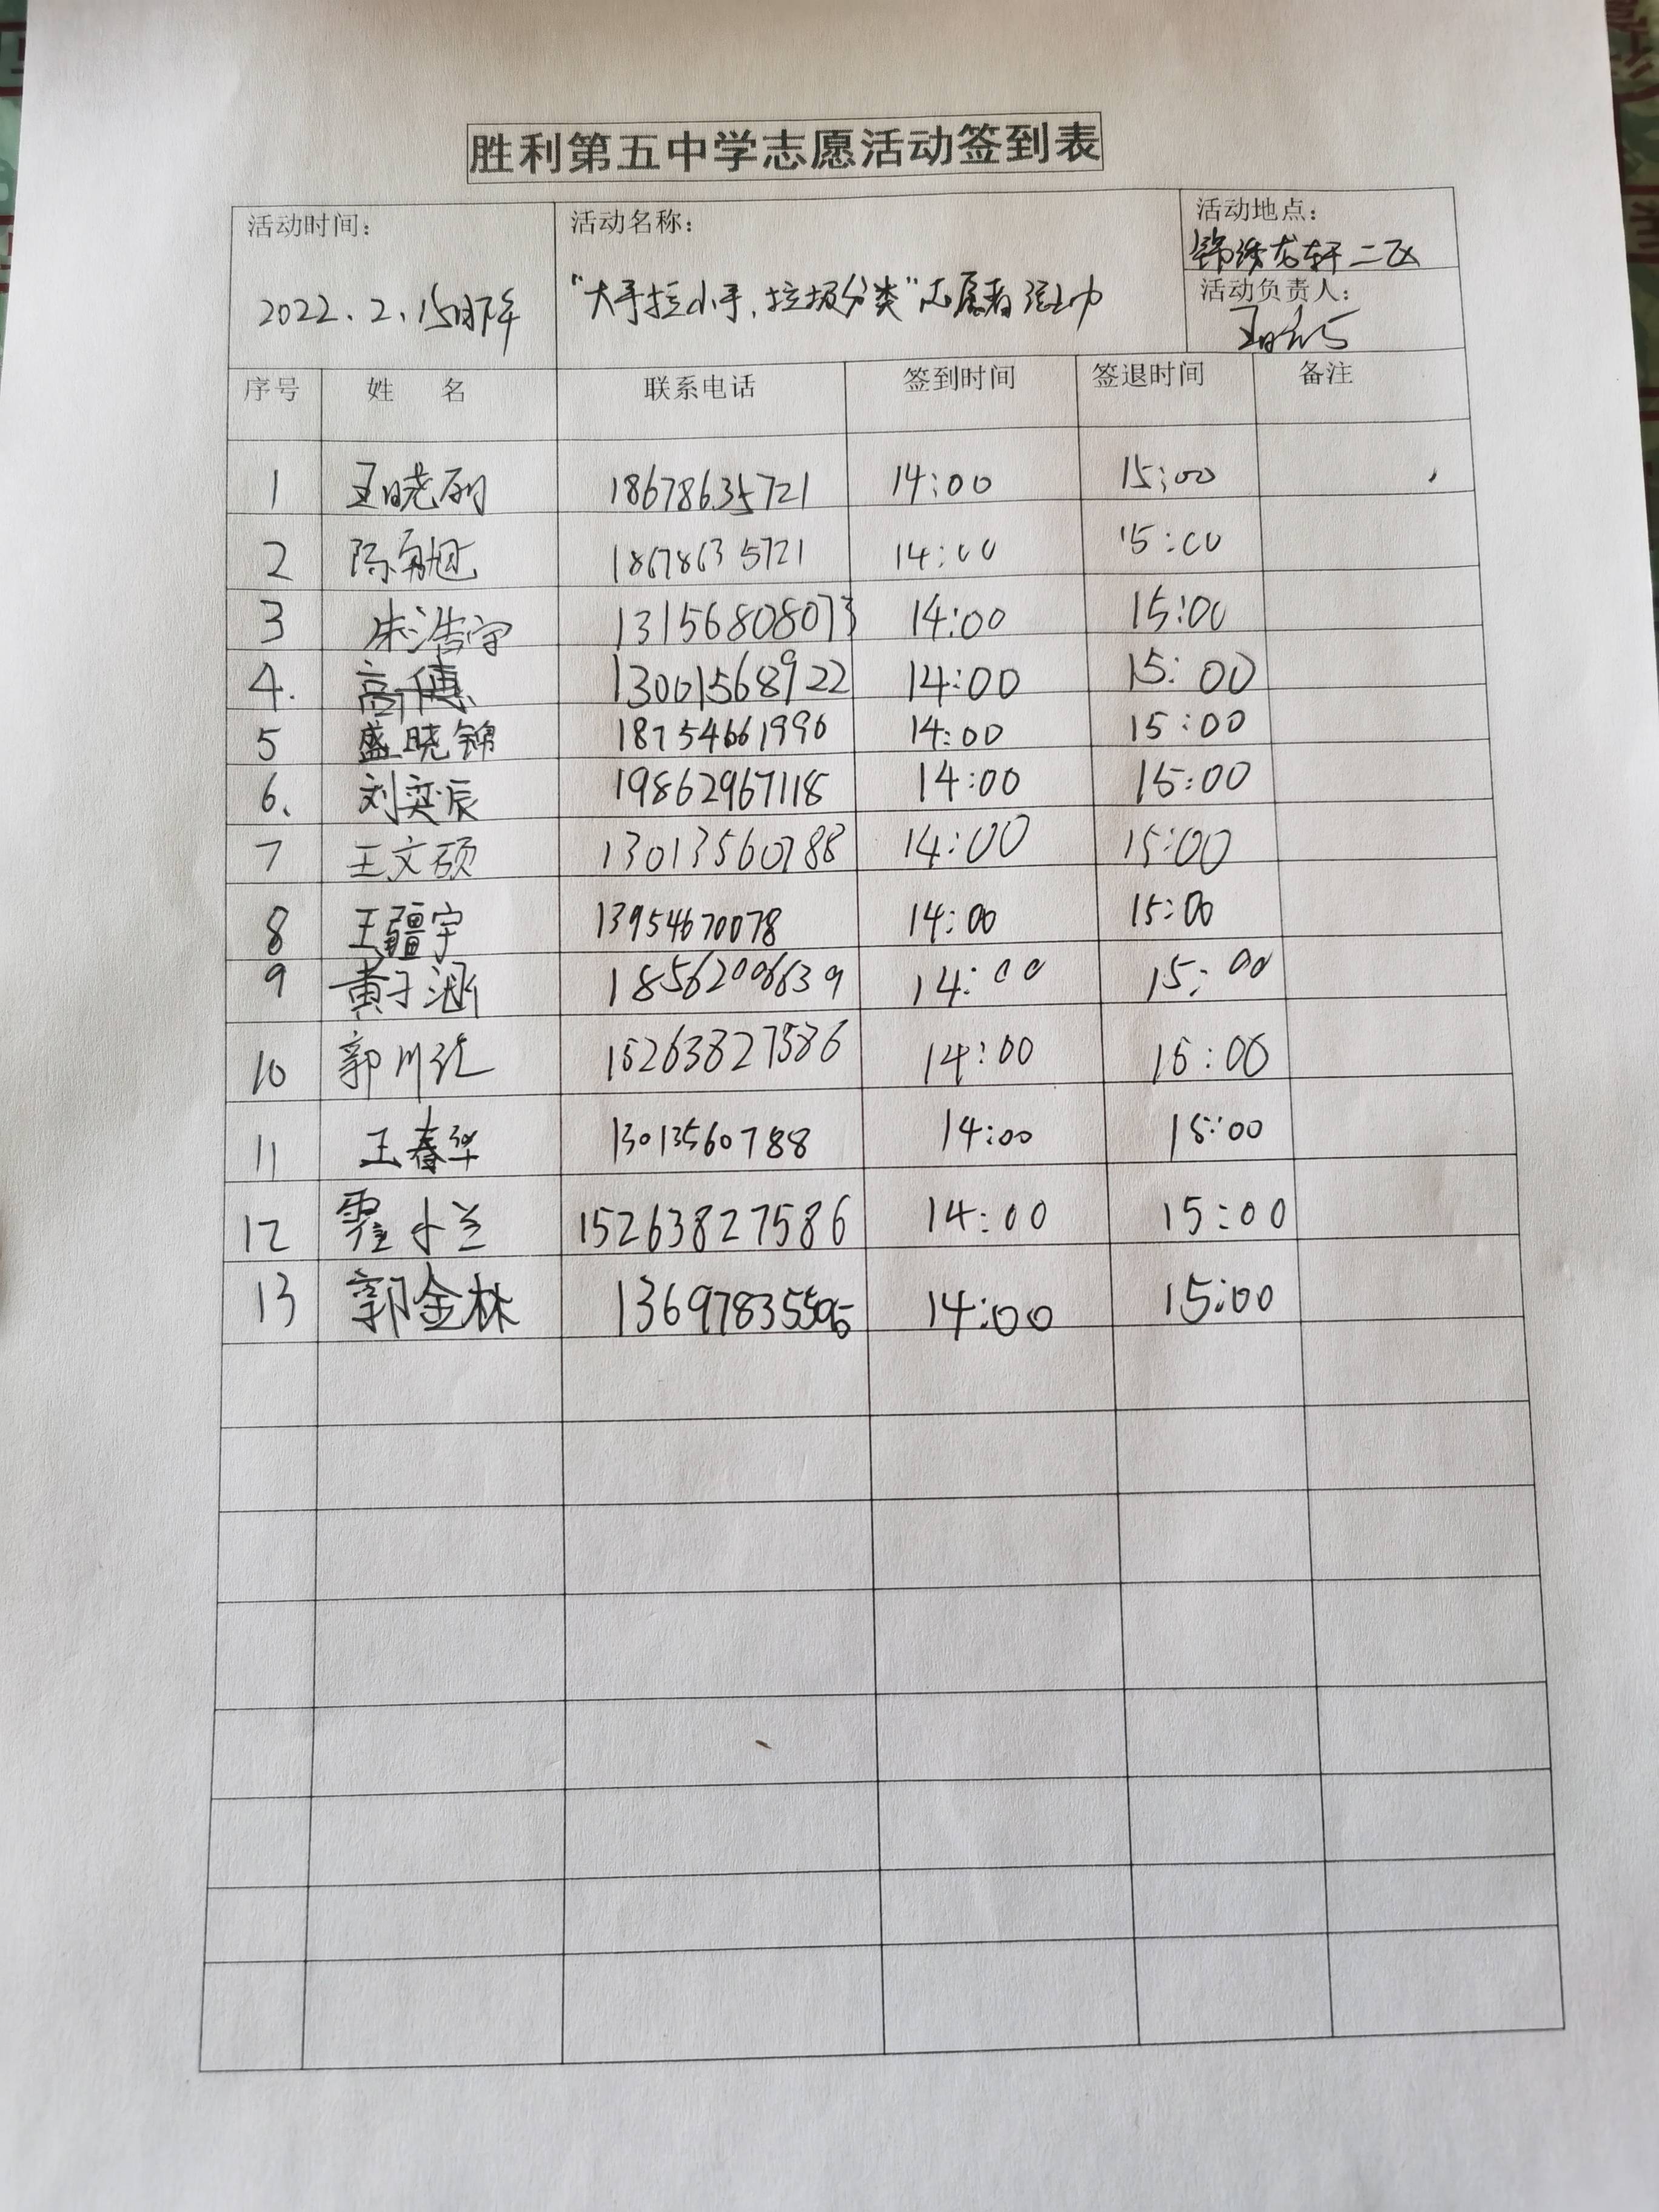 胜利第五中学志愿活动签到表
活动时间： 活动名称： 活动地点：
锦绣龙轩二区
2022.2.15日下午 “大手拉小手，垃圾分类”志愿者活动 活动负责人：
序号 姓 名 联系电话 签到时间 签退时间 备注
1 王晓丽 18678635721 14:00 15:00
2 陈 18678635721 14:00 15:00
3 朱浩宇 13156808073 14:00 15:00
4. 高 13001568922 14:00 15:00
5 盛晓锦 18754661990 14:00 15:00
6、 刘奕辰 19862967118 14:00 15:00
7 王文硕 13013560788 14:00 15:00
8 王疆宇 13954670078 14:00 15:00
9 黄子涵 18562006639 14:00 15:00
10 郭川 15263827586 14:00 15:00
11 王春华 13013560788 14:00 15:00
12 霍小兰 15263827586 14:00 15:00
13 郭金林 14:00 15:00